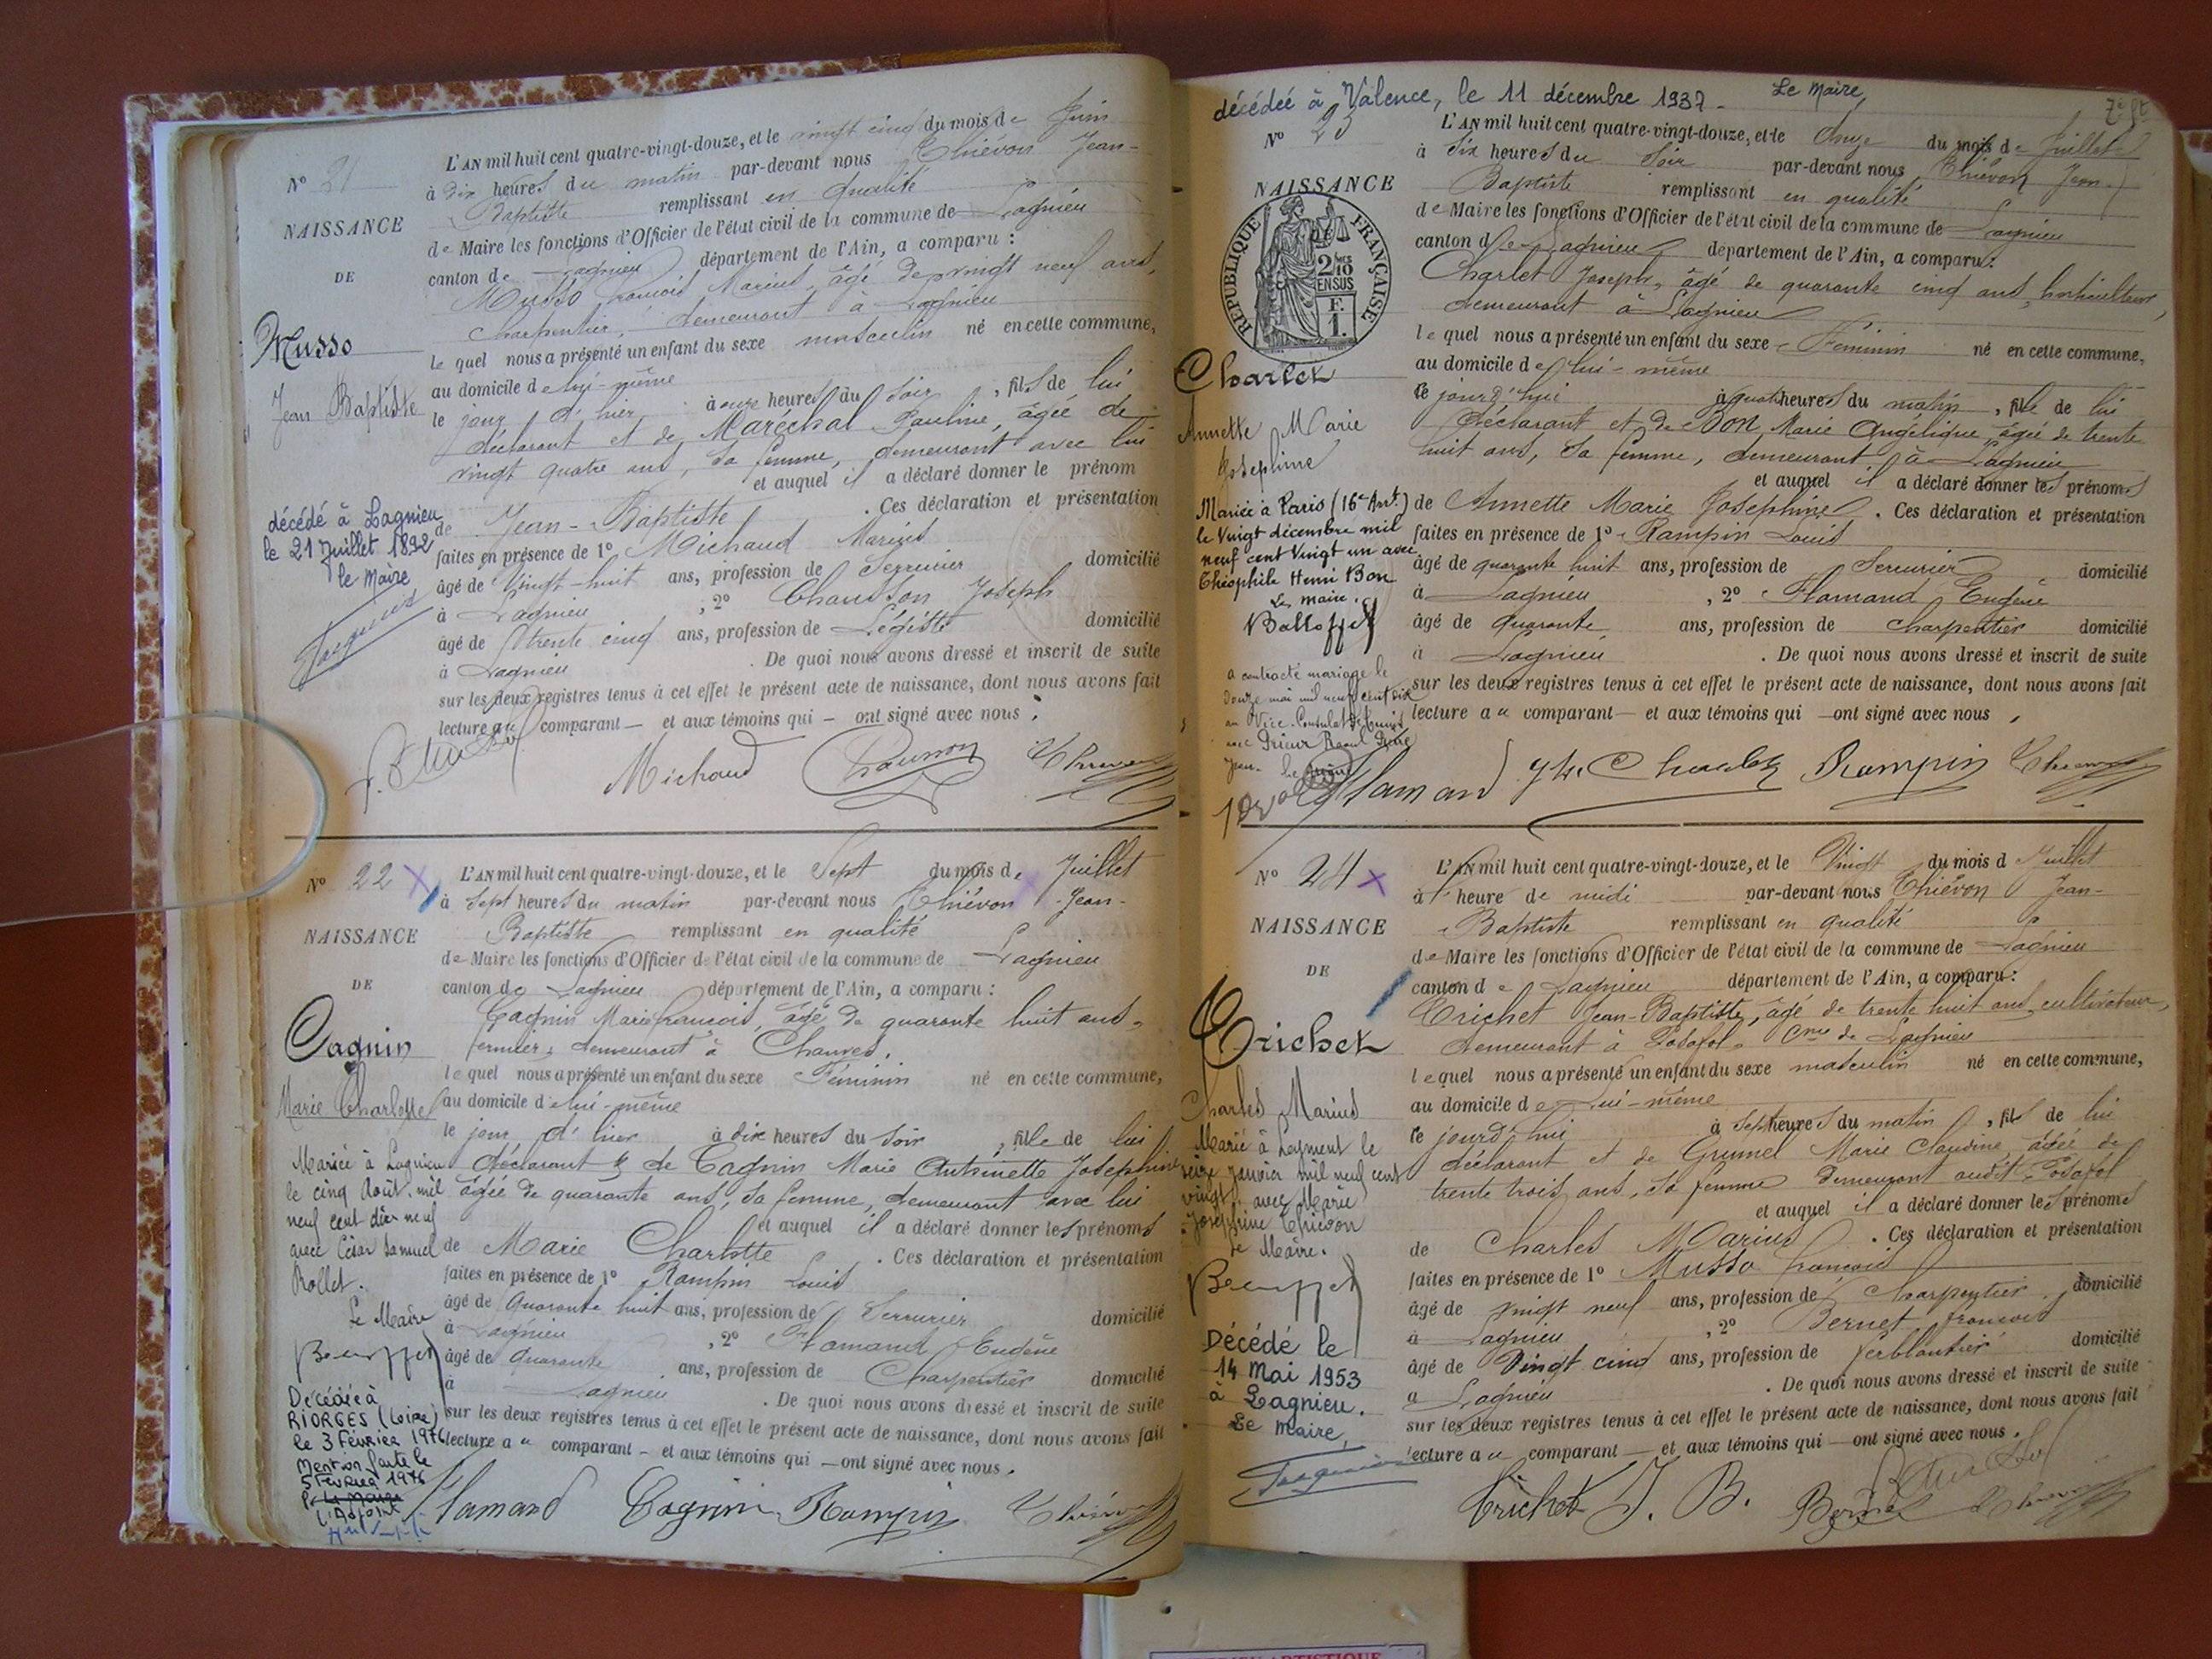 N° 21
NAISSANCE
DE
Musso
Jean Baptiste
décédé à Lagnieu
le 21 Juillet 1892
le Maire
L'AN mil huit cent quatre-vingt-douze, et le vingt cinq du mois de Juin
à dix heures du matin par-devant nous Thiévon Jean-
Baptiste remplissant en qualité
de Maire les fonctions d'Officier de l'état civil de la commune de Lagnieu
canton de Lagnieu département de l'Ain, a comparu :
Musso François Marius, âgé de vingt neuf ans,
charpentier, demeurant à Lagnieu
le quel nous a présenté un enfant du sexe masculin né en cette commune,
au domicile de lui-même
le jour d'hier à onze heures du soir, fils de lui
déclarant et de Maréchal Pauline, âgée de
vingt quatre ans, sa femme, demeurant avec lui
et auquel il a déclaré donner le prénom
de Jean-Baptiste . Ces déclaration et présentation
faites en présence de 1° Michaud Marius
âgé de Vingt-huit ans, profession de Serrurier domicilié
à Lagnieu , 2° Chausson Joseph
âgé de trente cinq ans, profession de Légiste domicilié
à Lagnieu . De quoi nous avons dressé et inscrit de suite
sur les deux registres tenus à cet effet le présent acte de naissance, dont nous avons fait
lecture au comparant — et aux témoins qui — ont signé avec nous .
Michaud Chausson Thiévon
N° 22
NAISSANCE
DE
Cagnin
Marie Charlotte
Mariée à Lagnieu
le cinq Août mil
neuf cent dix neuf
avec César Samuel
Rollet.
Le Maire
Décédée à
RIORGES (Loire)
le 3 Février 1976
Mention faite le
5 Février 1976
P. Le Maire
L'Adjoint
L'AN mil huit cent quatre-vingt-douze, et le Sept du mois de Juillet
à Sept heures du matin par-devant nous Thiévon Jean-
Baptiste remplissant en qualité
de Maire les fonctions d'Officier de l'état civil de la commune de Lagnieu
canton de Lagnieu département de l'Ain, a comparu :
Cagnin Marie François, âgé de quarante huit ans,
fermier, demeurant à Chanves.
le quel nous a présenté un enfant du sexe Féminin né en cette commune,
au domicile de lui-même
le jour d'hier à dix heures du soir , fille de lui
déclarant & de Cagnin Marie Antoinette Josephine
âgée de quarante ans, sa femme, demeurant avec lui
et auquel il a déclaré donner les prénoms
de Marie Charlotte . Ces déclaration et présentation
faites en présence de 1° Rampin Louis
âgé de Quarante huit ans, profession de Serrurier domicilié
à Lagnieu , 2° Flamand Eugène
âgé de quarante ans, profession de Charpentier domicilié
à Lagnieu . De quoi nous avons dressé et inscrit de suite
sur les deux registres tenus à cet effet le présent acte de naissance, dont nous avons fait
lecture au comparant — et aux témoins qui — ont signé avec nous .
Flamand Cagnin Rampin Thiévon
décédée à Valence, le 11 décembre 1937 - Le Maire,
N° 23
NAISSANCE
RÉPUBLIQUE FRANÇAISE
2/10 EN SUS
F.
1.
Charlet
Annette Marie
Josephine
Mariée à Paris (16e Art.)
le Vingt décembre mil
neuf cent Vingt un avec
Théophile Henri Bon
Le maire.
a contracté mariage le
douze mai mil neuf cent dix
au Vice-Consulat de
avec Prieur Raoul
Jean. Le Maire
L'AN mil huit cent quatre-vingt-douze, et le Onze du mois de Juillet
à Six heures du Soir par-devant nous Thiévon Jean-
Baptiste remplissant en qualité
de Maire les fonctions d'Officier de l'état civil de la commune de Lagnieu
canton de Lagnieu département de l'Ain, a comparu :
Charlet Joseph, âgé de quarante cinq ans, horticulteur,
demeurant à Lagnieu
le quel nous a présenté un enfant du sexe Féminin né en cette commune,
au domicile de lui-même
le jourd'hui à quatre heures du matin , fille de lui
déclarant et de Bon Marie Angélique âgée de trente
huit ans, sa femme, demeurant à Lagnieu
et auquel il a déclaré donner les prénoms
de Annette Marie Josephine . Ces déclaration et présentation
faites en présence de 1° Rampin Louis
âgé de quarante huit ans, profession de Serrurier domicilié
à Lagnieu , 2° Flamand Eugène
âgé de quarante ans, profession de charpentier domicilié
à Lagnieu . De quoi nous avons dressé et inscrit de suite
sur les deux registres tenus à cet effet le présent acte de naissance, dont nous avons fait
lecture au comparant — et aux témoins qui — ont signé avec nous .
Flamand Jh. Charlet Rampin Thiévon
N° 24
NAISSANCE
DE
Trichet
Charles Marius
Marié à Leyment le
seize janvier mil neuf cent
vingt avec Marie
Joséphine Thiévon
Le Maire.
Décédé le
14 Mai 1953
à Lagnieu.
Le Maire,
L'AN mil huit cent quatre-vingt-douze, et le Vingt du mois d Juillet
à l'heure de midi par-devant nous Thiévon Jean-
Baptiste remplissant en qualité
de Maire les fonctions d'Officier de l'état civil de la commune de Lagnieu
canton de Lagnieu département de l'Ain, a comparu :
Trichet Jean-Baptiste, âgé de trente huit ans, cultivateur,
demeurant à Posafol, Cne de Lagnieu
le quel nous a présenté un enfant du sexe masculin né en cette commune,
au domicile de Lui-même
le jourd'hui à sept heures du matin , fils de lui
déclarant et de Grumel Marie Claudine, âgée de
trente trois ans, sa femme demeurant audit Posafol
et auquel il a déclaré donner les prénoms
de Charles Marius . Ces déclaration et présentation
faites en présence de 1° Musso François
âgé de vingt neuf ans, profession de Charpentier domicilié
à Lagnieu , 2° Bernet François
âgé de Vingt cinq ans, profession de ferblantier domicilié
à Lagnieu . De quoi nous avons dressé et inscrit de suite
sur les deux registres tenus à cet effet le présent acte de naissance, dont nous avons fait
lecture au comparant — et aux témoins qui — ont signé avec nous .
Trichet J. B. Bernet Thiévon